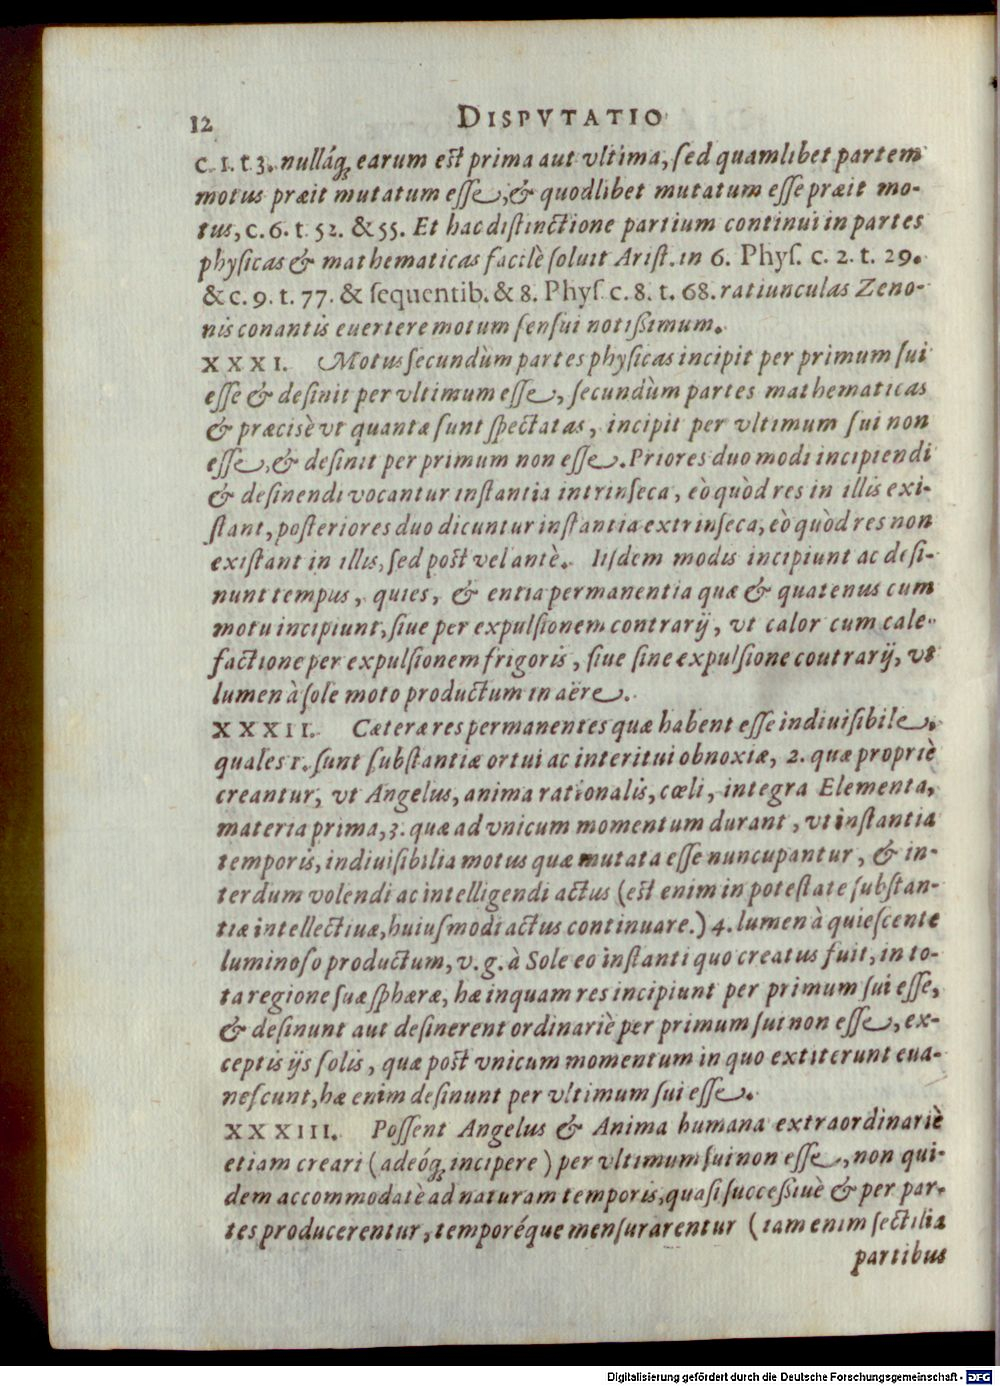 12 DISPVTATIO
c. 1. t. 3. nulláq; earum est prima aut vltima, sed quamlibet partem
motus præit mutatum esse, & quodlibet mutatum esse præit mo-
tus, c. 6. t. 52. & 55. Et hac distinctione partium continui in partes
physicas & mathematicas facilè soluit Arist. in 6. Phys. c. 2. t. 29.
& c. 9. t. 77. & sequentib. & 8. Phys. c. 8. t. 68. ratiunculas Zeno-
nis conantis euertere motum sensui notißimum.
XXXI. Motus secundùm partes physicas incipit per primum sui
esse & desinit per vltimum esse, secundùm partes mathematicas
& præcisè vt quantæ sunt spectatas, incipit per vltimum sui non
esse, & desinit per primum non esse. Priores duo modi incipiendi
& desinendi vocantur instantia intrinseca, eò quòd res in illis exi-
stant, posteriores duo dicuntur instantia extrinseca, eò quòd res non
existant in illis, sed post vel antè. Iisdem modis incipiunt ac desi-
nunt tempus, quies, & entia permanentia quæ & quatenus cum
motu incipiunt, siue per expulsionem contrarij, vt calor cum cale-
factione per expulsionem frigoris, siue sine expulsione coutrarij, vt
lumen à sole moto productum in aëre.
XXXII. Cæteræ res permanentes quæ habent esse indiuisibile,
quales 1. sunt substantiæ ortui ac interitui obnoxiæ, 2. quæ propriè
creantur, vt Angelus, anima rationalis, cœli, integra Elementa,
materia prima, 3. quæ ad vnicum momentum durant, vt instantia
temporis, indiuisibilia motus quæ mutata esse nuncupantur, & in-
terdum volendi ac intelligendi actus (est enim in potestate substan-
tiæ intellectiuæ, huiusmodi actus continuare.) 4. lumen à quiescente
luminoso productum, v. g. à Sole eo instanti quo creatus fuit, in to-
ta regione suæ sphæræ, hæ inquam res incipiunt per primum sui esse,
& desinunt aut desinerent ordinariè per primum sui non esse, ex-
ceptis ijs solis, quæ post vnicum momentum in quo extiterunt eua-
nescunt, hæ enim desinunt per vltimum sui esse.
XXXIII. Possent Angelus & Anima humana extraordinariè
etiam creari (adeóq; incipere) per vltimum sui non esse, non qui-
dem accommodatè ad naturam temporis, quasi successiuè & per par-
tes producerentur, temporéque mensurarentur (tam enim sectilia
partibus
Digitalisierung gefördert durch die Deutsche Forschungsgemeinschaft - DFG